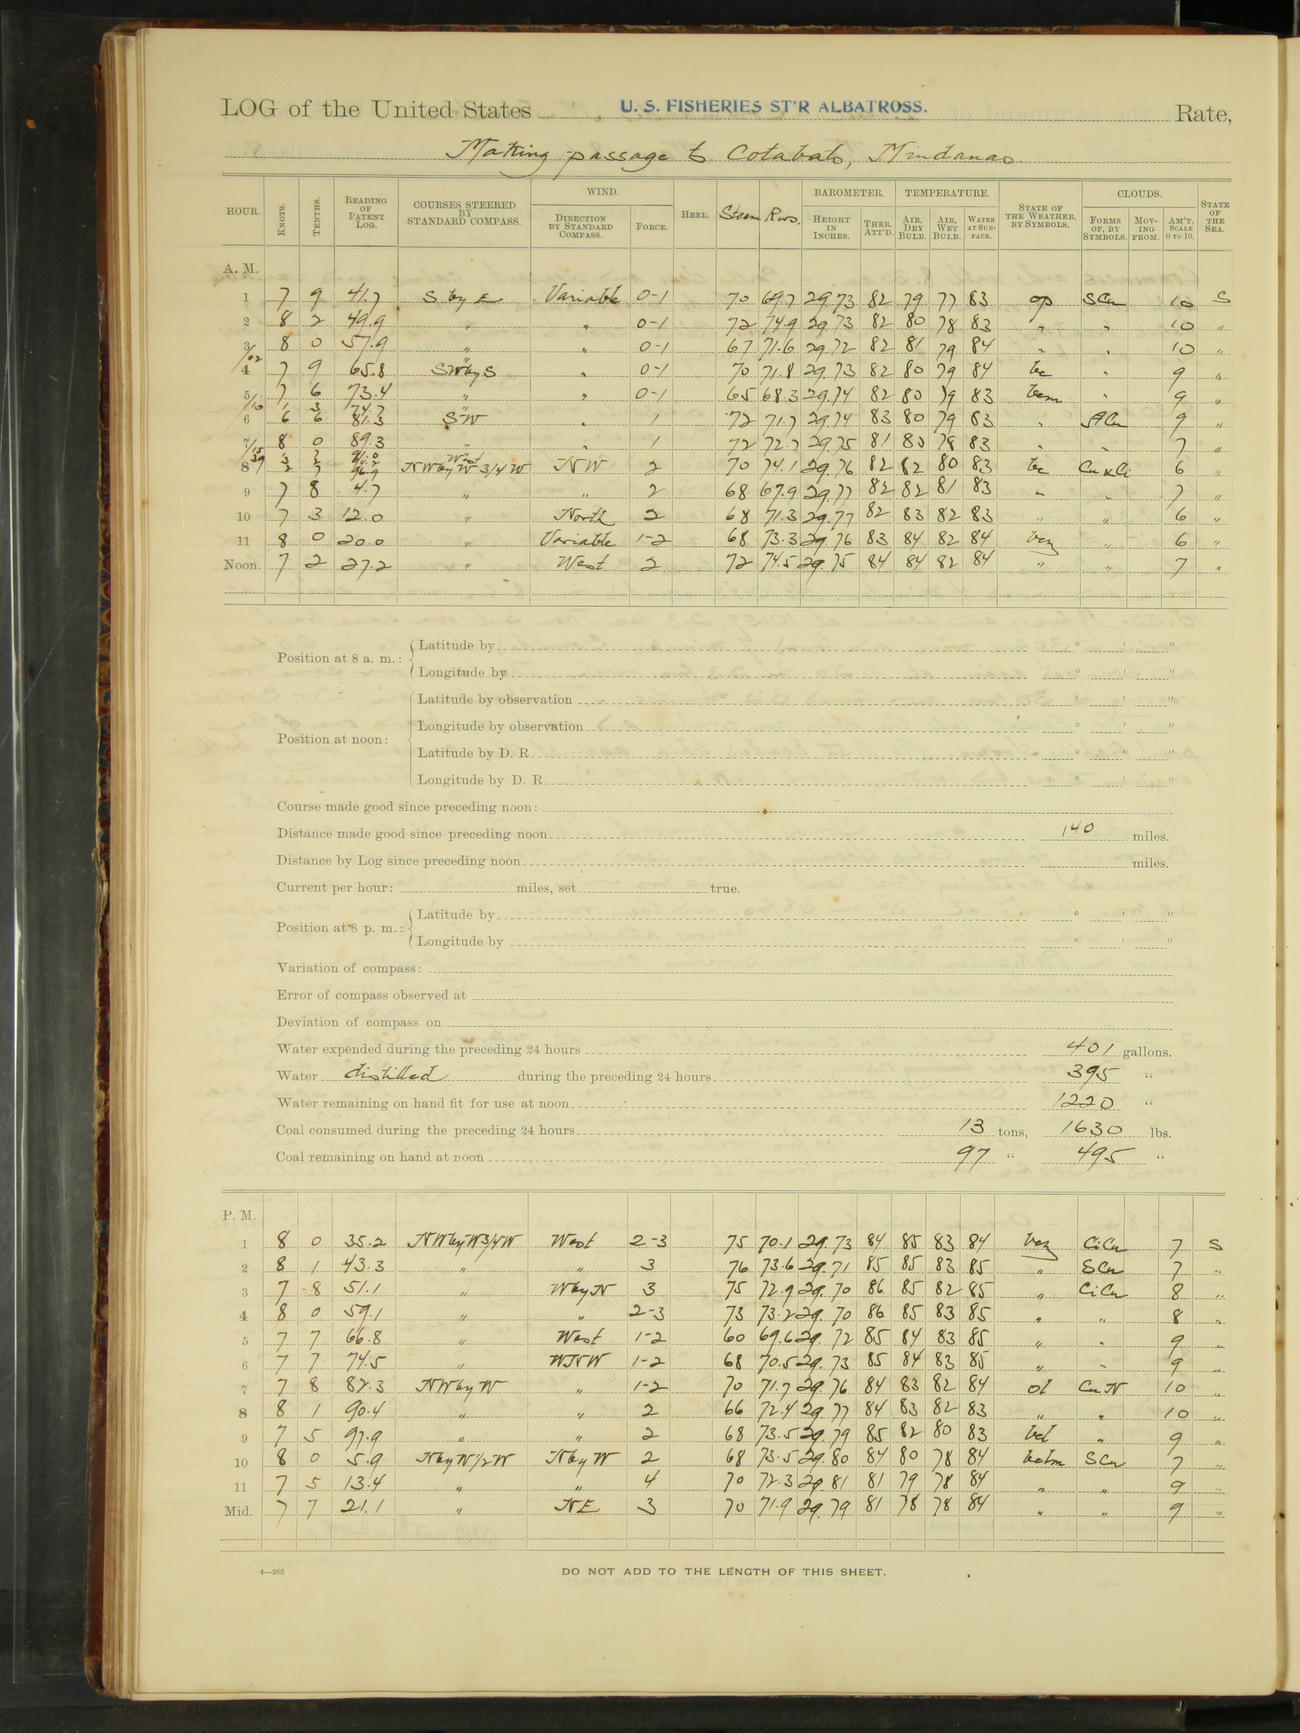 LOG of the United States U. S. FISHERIES ST'R ALBATROSS. Rate,
Making passage to Cotabato, Mindanao
HOUR. KNOTS. TENTHS. READING OF PATENT LOG. COURSES STEERED BY STANDARD COMPASS. WIND. DIRECTION BY STANDARD COMPASS. FORCE. HEEL. Steam Revs. BAROMETER. HEIGHT IN INCHES. THER. ATT'D. TEMPERATURE. AIR, DRY BULB. AIR, WET BULB. WATER AT SURFACE. STATE OF THE WEATHER, BY SYMBOLS. CLOUDS. FORMS OF, BY SYMBOLS. MOVING FROM. AM'T. SCALE 0 TO 10. STATE OF THE SEA.
A. M.
1 7 9 41.7 S by E Variable 0-1 70 69.7 29.73 82 79 77 83 op SCu 10 S
2 8 2 49.9 " " 0-1 72 74.9 29.73 82 80 78 83 " " 10 "
3 8 0 57.9 " " 0-1 67 71.6 29.72 82 81 79 84 " " 10 "
4 7 9 65.8 SW by S " 0-1 70 71.8 29.73 82 80 79 84 bc " 9 "
5 7 6 73.4 " " 0-1 65 68.3 29.74 82 80 79 83 bcm " 9 "
6 6 6 81.3 SW " 1 72 71.7 29.74 83 80 79 83 " ACu 9 "
7 8 0 89.3 " " 1 72 72.7 29.75 81 80 78 83 " " 7 "
8 NW by W 3/4 W NW 2 70 74.1 29.76 82 82 80 83 bc Cu & Ci 6 "
9 7 8 4.7 " " 2 68 67.9 29.77 82 82 81 83 " " 7 "
10 7 3 12.0 " North 2 68 71.3 29.77 82 83 82 83 " " 6 "
11 8 0 20.0 " Variable 1-2 68 73.3 29.76 83 84 82 84 bcz " 6 "
Noon. 7 2 27.2 " West 2 72 74.5 29.75 84 84 82 84 " " 7 "
Position at 8 a. m.: Latitude by ° ' "
Longitude by ° ' "
Position at noon: Latitude by observation ° ' "
Longitude by observation ° ' "
Latitude by D. R. ° ' "
Longitude by D. R. ° ' "
Course made good since preceding noon:
Distance made good since preceding noon 140 miles.
Distance by Log since preceding noon miles.
Current per hour: miles, set true.
Position at 8 p. m.: Latitude by ° ' "
Longitude by ° ' "
Variation of compass:
Error of compass observed at
Deviation of compass on
Water expended during the preceding 24 hours 401 gallons.
Water distilled during the preceding 24 hours 395 "
Water remaining on hand fit for use at noon 1220 "
Coal consumed during the preceding 24 hours 13 tons, 1630 lbs.
Coal remaining on hand at noon 97 " 495 "
P. M.
1 8 0 35.2 NW by W 3/4 W West 2-3 75 70.1 29.73 84 85 83 84 bcz CiCu 7 S
2 8 1 43.3 " " 3 76 73.6 29.71 85 85 83 85 " SCu 7 "
3 7 8 51.1 " W by N 3 75 72.9 29.70 86 85 82 85 " CiCu 8 "
4 8 0 59.1 " " 2-3 73 73.2 29.70 86 85 83 85 " " 8 "
5 7 7 66.8 " West 1-2 60 69.6 29.72 85 84 83 85 " " 9 "
6 7 7 74.5 " WNW 1-2 68 70.5 29.73 85 84 83 85 " " 9 "
7 7 8 82.3 NW by W " 1-2 70 71.7 29.76 84 83 82 84 ol CuN 10 "
8 8 1 90.4 " " 2 66 72.4 29.77 84 83 82 83 " " 10 "
9 7 5 97.9 " " 2 68 73.5 29.79 85 82 80 83 bcl " 9 "
10 8 0 5.9 N by W 1/2 W N by W 2 68 73.5 29.80 84 80 78 84 bclm SCu 7 "
11 7 5 13.4 " " 4 70 72.3 29.81 81 79 78 84 " " 9 "
Mid. 7 7 21.1 " NE 3 70 71.9 29.79 81 78 78 84 " " 9 "
4—205 DO NOT ADD TO THE LENGTH OF THIS SHEET.